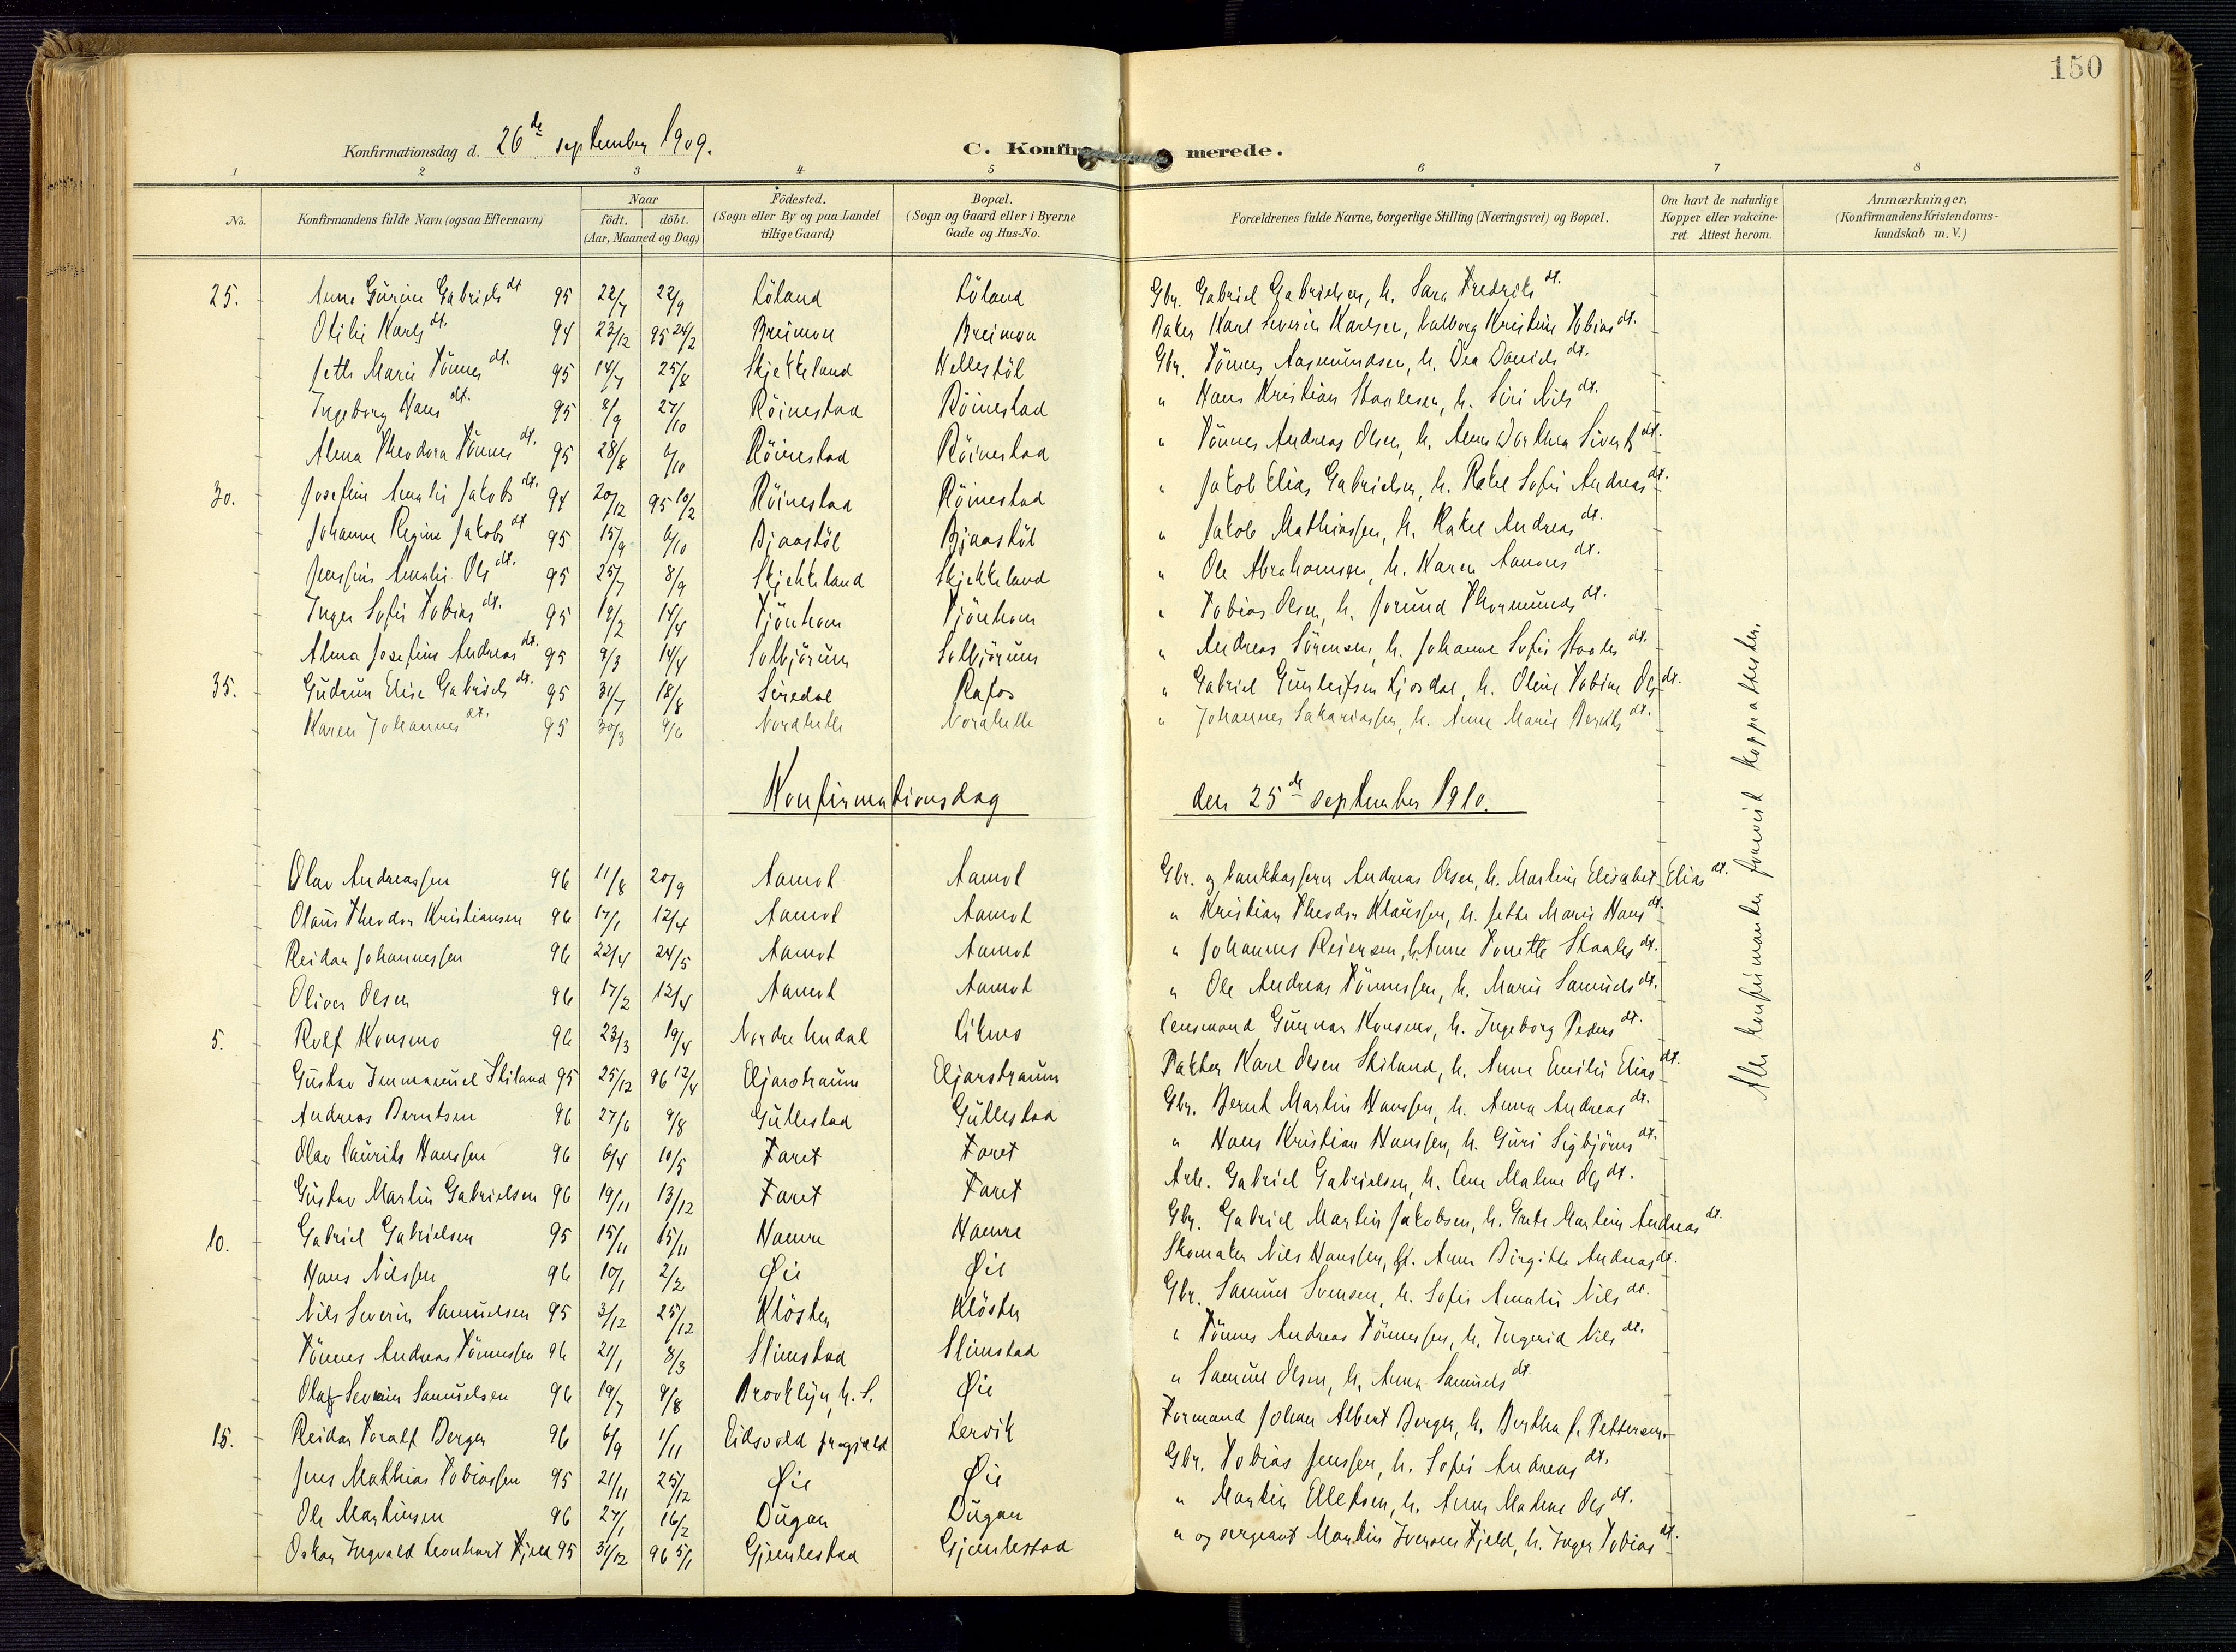 150
Konfirmationsdag d. 26de september 1909. C. Konfirmerede.
1 2 3 4 5 6 7 8
No. Konfirmandens fulde Navn (ogsaa Efternavn) Naar født. døbt. (Aar, Maaned og Dag) Fødested. (Sogn eller By og paa Landet tillige Gaard) Bopæl. (Sogn og Gaard eller i Byerne Gade og Hus-No. Forældrenes fulde Navne, borgerlige Stilling (Næringsvei) og Bopæl. Om havt de naturlige Kopper eller vakcineret. Attest herom. Anmærkninger, (Konfirmandens Kristendomskundskab m. V.)
25. Anne Gurine Gabriels dt 95 22/7 22/9 Löland Löland Gbr. Gabriel Gabrielsen, h. Sara Fredriks dt.
Otilie Karls dt. 94 23/12 95 24/2 Breimon Breimon Baker Karl Severin Karlsen, Valborg Kristine Tobias dt.
Jette Marie Tönnes dt. 95 14/7 25/8 Skjekkeland Hellestöl Gbr. Tönnes Aasmundsen, h. Dea Daniels dt.
Ingeborg Hans dt. 95 8/9 27/10 Röinestad Röinestad " Hans Kristian Staalesen, h. Siri Nils dt.
Alma Theodora Tönnes dt. 95 28/8 6/10 Röinestad Röinestad " Tönnes Andreas Olsen, h. Anna Dorthea Siverts dt.
30. Josefine Amalie Jakobs dt. 94 20/12 95 10/2 Röinestad Röinestad " Jakob Elias Gabrielsen, h. Rakel Sofie Andreas dt.
Johanne Regine Jakobs dt 95 15/9 6/10 Bjaastöl Bjaastöl " Jakob Mathiassen, h. Rakel Andreas dt.
Jensine Amalie Ols dt. 95 25/7 8/9 Skjekkeland Skjekkeland " Ole Abrahamsen, h. Karen Aanons dt.
Inger Sofie Tobias dt. 95 19/2 14/4 Tjönhom Tjönhom " Tobias Olsen, h. Jorund Thormunds dt.
Alma Josefine Andreas dt. 95 9/3 14/4 Solbjörum Solbjörum " Andreas Sörensen, h. Johanne Sofie Staales dt.
35. Gudrun Elise Gabriels dt. 95 31/7 18/8 Siredal Rafos " Gabriel Gunleifsen Liosdal, h. Oline Tobine Ols dt.
Karen Johannes dt. 95 30/3 9/6 Nordhelle Nordhelle " Johannes Sakariassen, h. Anne Marie Bernts dt.
Konfirmationsdag den 25de september 1910.
Olav Andreassen 96 11/8 20/9 Aamot Aamot Gbr. og bankkasserer Andreas Olsen, h. Martine Elisabet Elias dt.
Olaus Theodor Kristiansen 96 17/1 12/4 Aamot Aamot " Kristian Theodor Klaussen, h. Jette Marie Hans dt.
Reidar Johannessen 96 22/4 24/5 Aamot Aamot " Johannes Reiersen, h. Anne Tonette Staales dt.
Oliver Olsen 96 17/2 12/4 Aamot Aamot " Ole Andreas Tönnessen, h. Marie Samuels dt.
5. Rolf Konsmo 96 23/3 19/4 Nordre Undal Liknes Lensmand Gunnar Konsmo, h. Ingeborg Peders dt.
Gustav Immanuel Skiland 95 25/12 96 12/4 Eljarstraum Eljarstraum Pakter Karl Olsen Skiland, h. Anne Emilie Elias dt.
Andreas Berntsen 96 27/6 9/8 Gullestad Gullestad Gbr. Bernt Martin Hanssen, h. Anna Andreas dt.
Olav Laurits Hanssen 96 6/4 10/5 Faret Faret " Hans Kristian Hanssen, h. Guri Sigbjörns dt.
Gustav Martin Gabrielsen 96 19/11 13/12 Faret Faret Arb. Gabriel Gabrielsen, h. Ane Malene Ols dt.
10. Gabriel Gabrielsen 95 15/11 15/11 Hamre Hamre Gbr. Gabriel Martin Jakobsen, h. Grete Martine Andreas dt.
Hans Nilssen 96 10/1 2/2 Øie Øie Skomaker Nils Hanssen, h. Anne Birgitte Andreas dt.
Nils Severin Samuelsen 95 3/12 25/12 Klöster Klöster Gbr. Samuel Svensen, h. Sofie Amalie Nils dt.
Tönnes Andreas Tönnessen 96 21/1 8/3 Slimstad Slimstad " Tönnes Andreas Tönnessen, h. Ingerid Nils dt.
Olaf Severin Samuelsen 96 19/7 9/8 Brooklyn, U. S. Øie " Samuel Olsen, h. Anna Samuels dt.
15. Reidar Toralf Berger 96 6/9 1/11 Eidsvold prgjeld Lervik Formand Johan Albert Berger, h. Bertha J. Pettersen.
Jens Mathias Tobiassen 95 21/11 25/12 Øie Øie Gbr. Tobias Jenssen, h. Sofie Andreas dt.
Ole Martinsen 96 27/1 16/2 Dugan Dugan " Martin Ellefsen, h. Anne Malene Ols dt.
Oskar Ingvald Leonhart Fjeld 95 31/12 96 5/1 Gjemlestad Gjemlestad " og sergeant Martin Iversen Fjeld, h. Inger Tobias dt.
Alle konfirmander foreviste koppeattester.